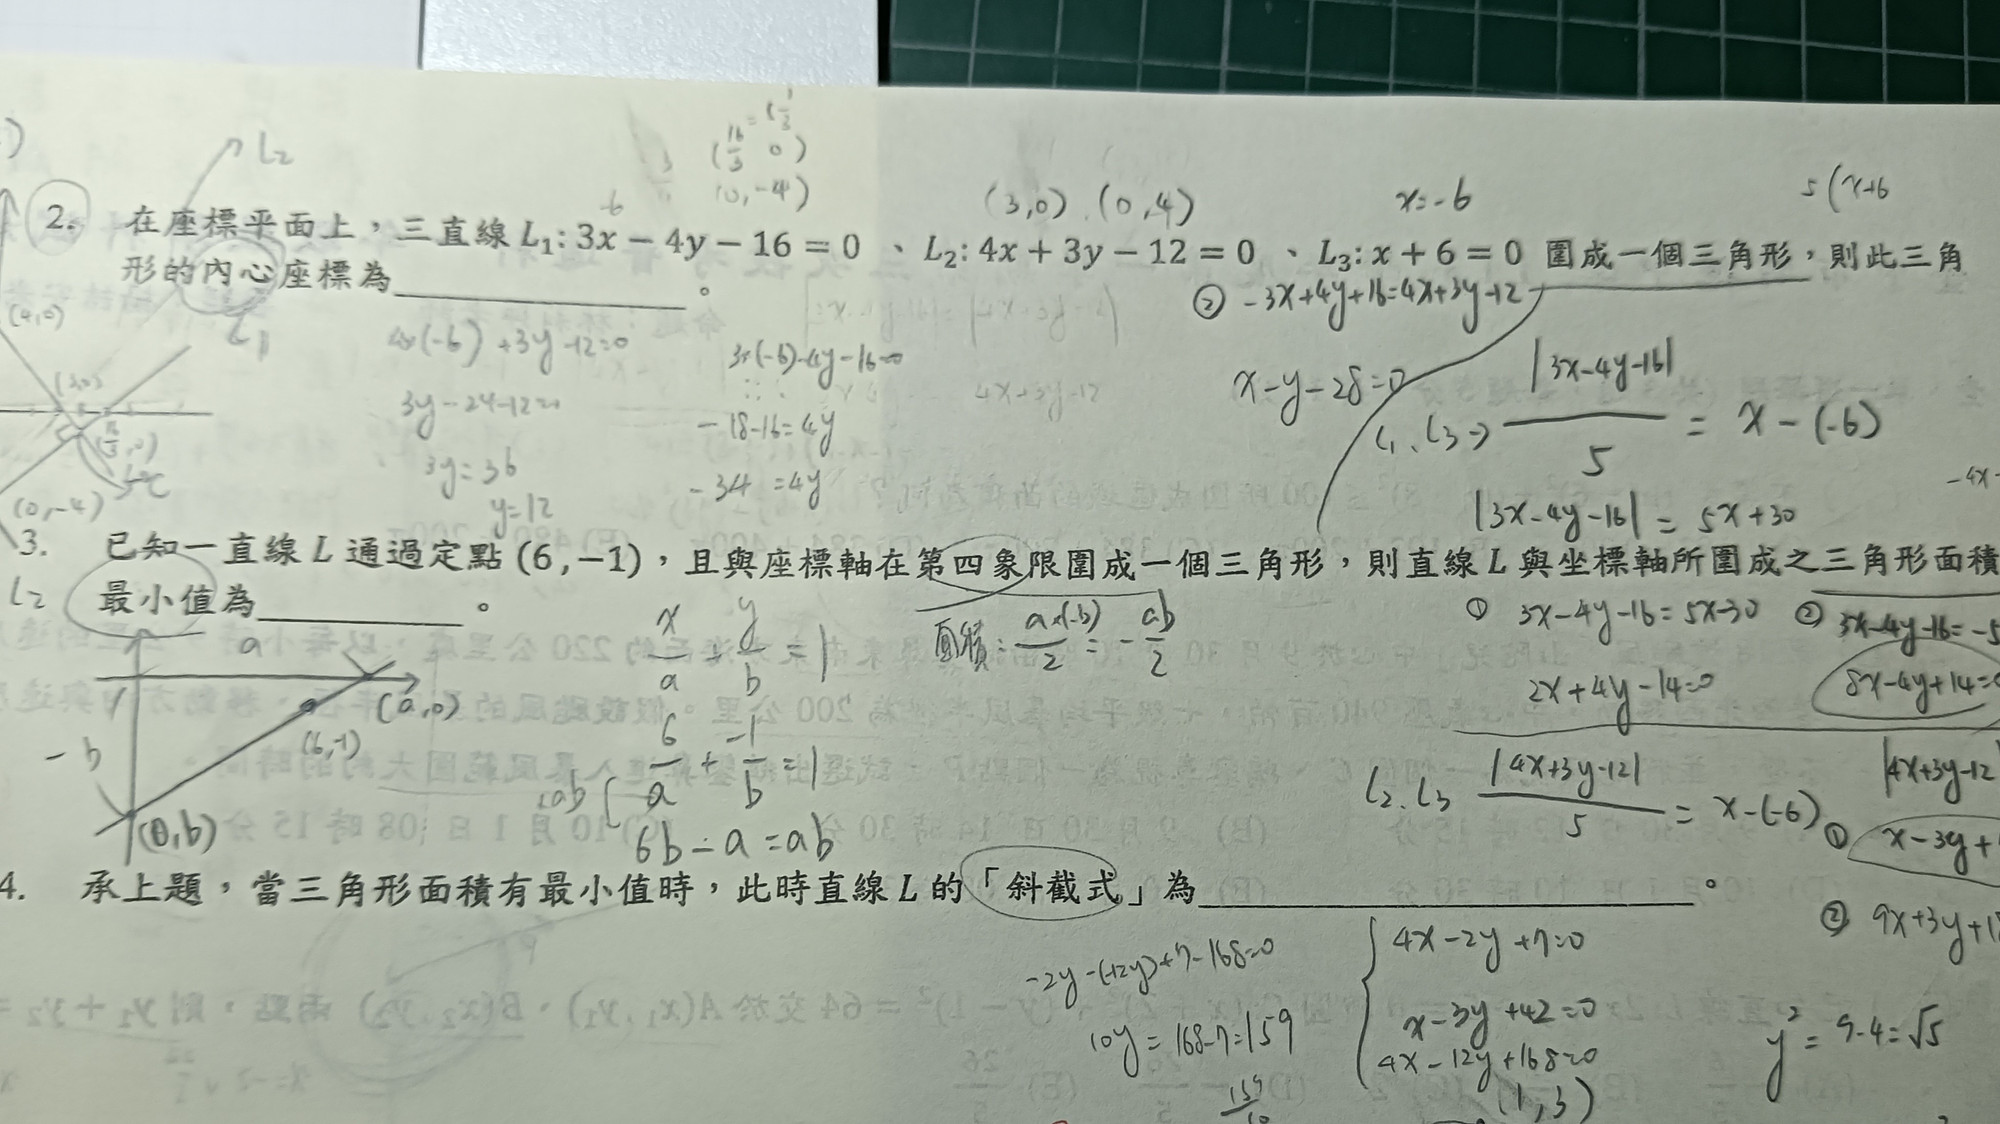 L₂
= 5 1/3
(16/3 0)
(0, -4)
-6
(3,0) (0,4)
x=-6
5(x+6
2. 在座標平面上，三直線 L₁: 3x − 4y − 16 = 0 、L₂: 4x + 3y − 12 = 0 、L₃: x + 6 = 0 圍成一個三角形，則此三角
形的內心座標為____________。
② -3x+4y+16=4x+3y-12
x-y-28=0
L₁
(3,0)
(16/3,0)
(0,-4)
4x(-6)+3y-12=0
3y-24-12=0
3y=36
y=12
3x(-6)-4y-16=0
-18-16=4y
-34=4y
L₁、L₃→ |3x-4y-16|/5 = x-(-6)
|3x-4y-16| = 5x+30
-4x-
3. 已知一直線 L 通過定點 (6,−1)，且與座標軸在第四象限圍成一個三角形，則直線 L 與坐標軸所圍成之三角形面積
L₂
最小值為____________。
a
(a,0)
(6,-1)
-b
(0,b)
x/a + y/b = 1
6/a + -1/b = 1
6b-a=ab
面積: a×(-b)/2 = -ab/2
① 3x-4y-16=5x-30
2x+4y-14=0
② 3x-4y-16=-5
8x-4y+14=0
L₂、L₃ |4x+3y-12|/5 = x-(-6)
|4x+3y-12
① x-3y+
② 9x+3y+18
4. 承上題，當三角形面積有最小值時，此時直線 L 的「斜截式」為____________。
-2y-(-12y)+7-168=0
10y=168-7=159
159/10
4x-2y+7=0
x-3y+42=0
4x-12y+168=0
(1,3)
y²=9-4=√5